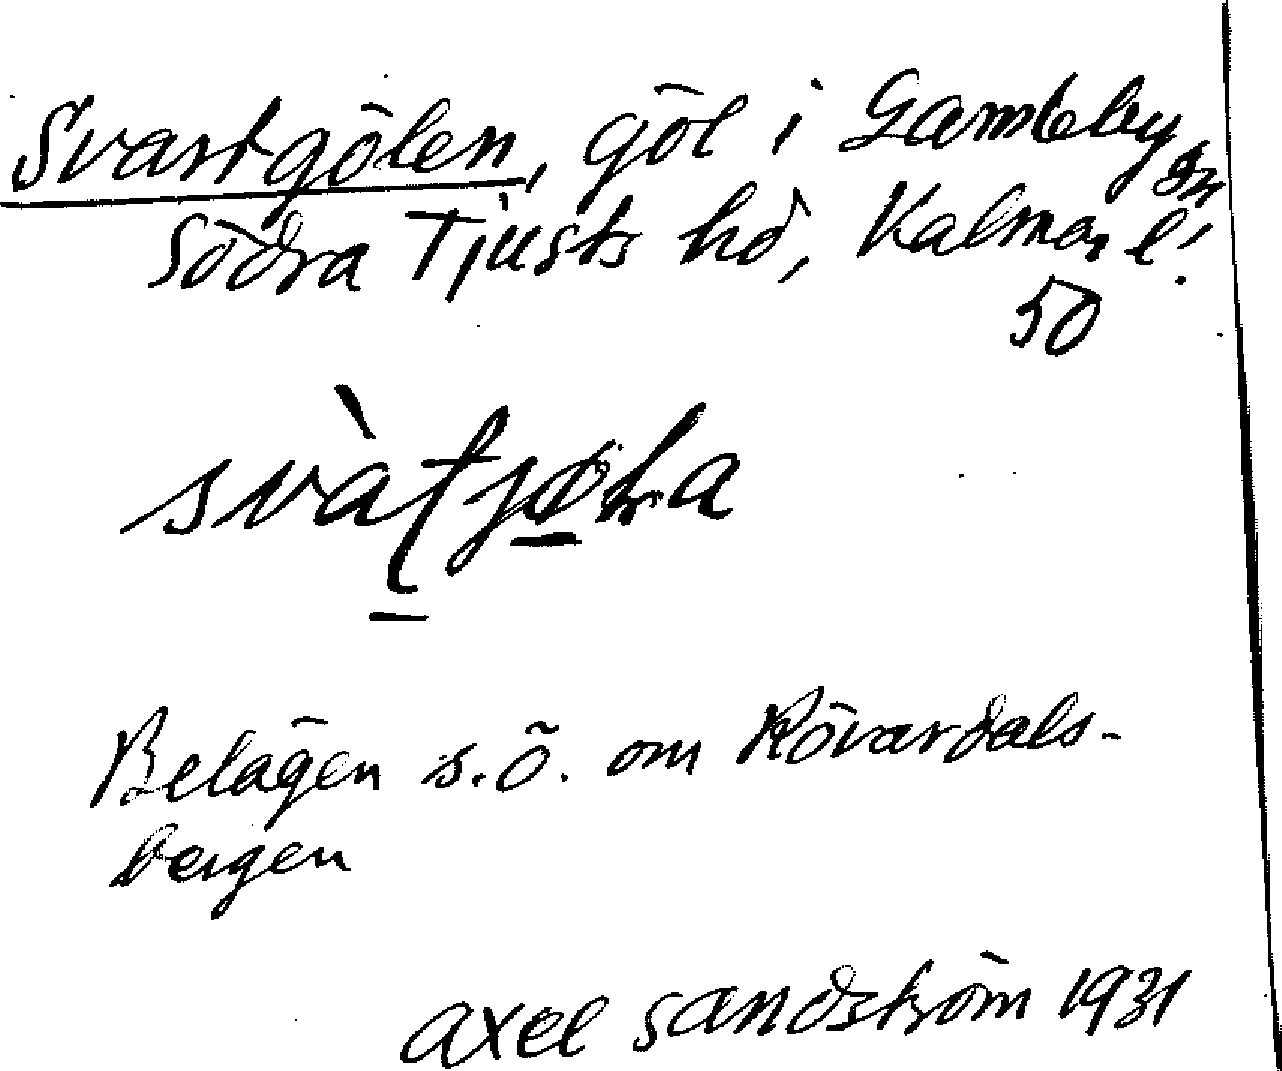 Svartgölen, göl i Gamleby sn
Södra Tjusts hd, Kalmar l.
50
Belägen s.ö. om Rövardals-
bergen
Axel Sandström 1931